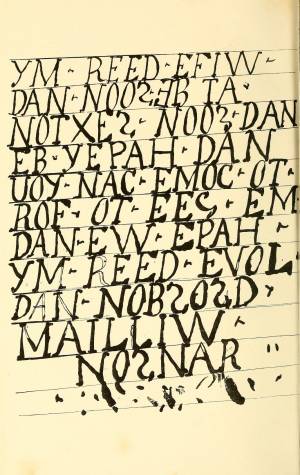 YM · REED · EFIW ·
DAN · NOOS · EB TA ·
NOTXES · NOOS · DAN
EB · YEPAH · DAN
UOY · NAC · EMOC · OT ·
ROF · OT · EES · EM ·
DAN · EW · EPAH ·
YM · REED · EVOL ·
DAN · NOBSOSD ·
MAILLIW ·
NOSNAR ·